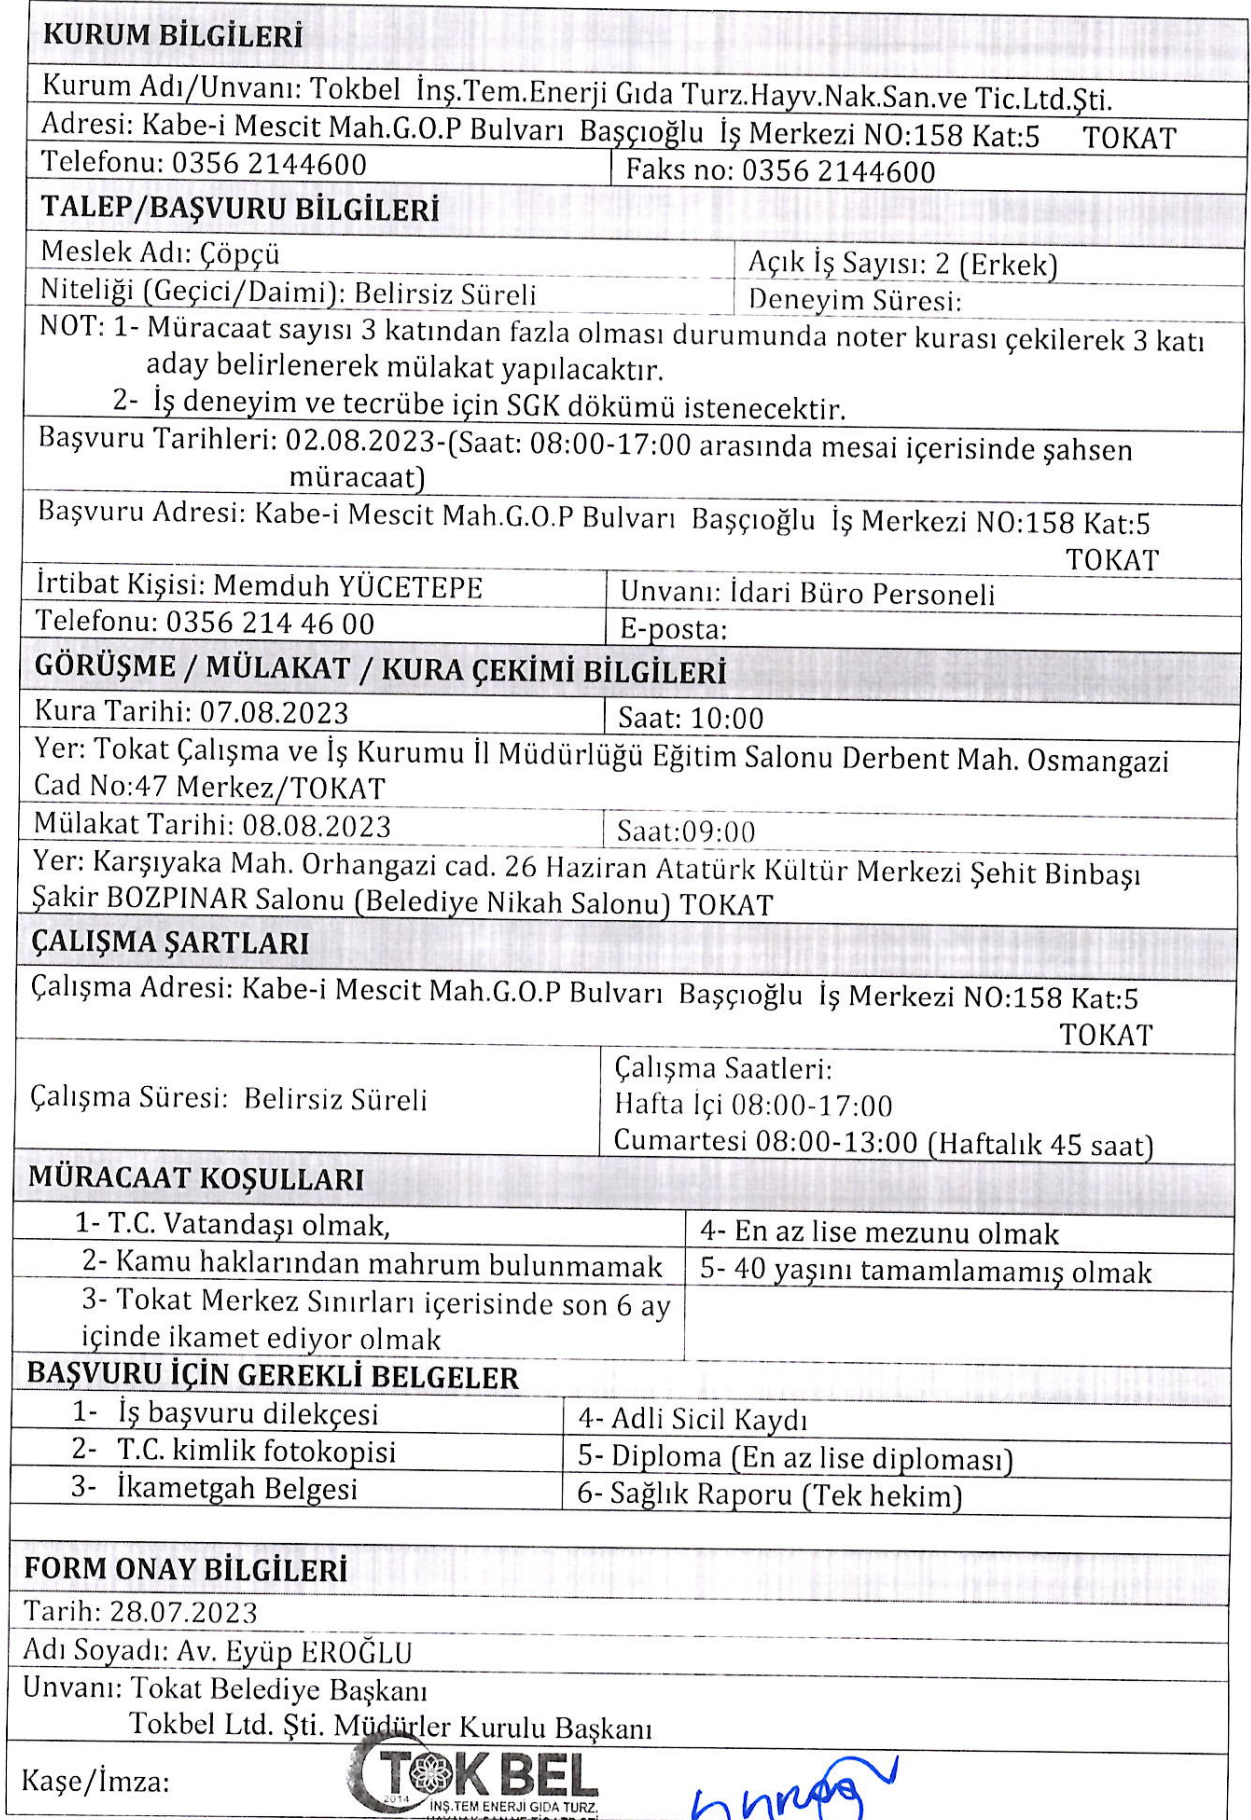 KURUM BİLGİLERİ
Kurum Adı/Unvanı: Tokbel İnş.Tem.Enerji Gıda Turz.Hayv.Nak.San.ve Tic.Ltd.Şti.
Adresi: Kabe-i Mescit Mah.G.O.P Bulvarı Başçıoğlu İş Merkezi NO:158 Kat:5 TOKAT
Telefonu: 0356 2144600 Faks no: 0356 2144600
TALEP/BAŞVURU BİLGİLERİ
Meslek Adı: Çöpçü Açık İş Sayısı: 2 (Erkek)
Niteliği (Geçici/Daimi): Belirsiz Süreli Deneyim Süresi:
NOT: 1- Müracaat sayısı 3 katından fazla olması durumunda noter kurası çekilerek 3 katı
aday belirlenerek mülakat yapılacaktır.
2- İş deneyim ve tecrübe için SGK dökümü istenecektir.
Başvuru Tarihleri: 02.08.2023-(Saat: 08:00-17:00 arasında mesai içerisinde şahsen
müracaat)
Başvuru Adresi: Kabe-i Mescit Mah.G.O.P Bulvarı Başçıoğlu İş Merkezi NO:158 Kat:5
TOKAT
İrtibat Kişisi: Memduh YÜCETEPE Unvanı: İdari Büro Personeli
Telefonu: 0356 214 46 00 E-posta:
GÖRÜŞME / MÜLAKAT / KURA ÇEKİMİ BİLGİLERİ
Kura Tarihi: 07.08.2023 Saat: 10:00
Yer: Tokat Çalışma ve İş Kurumu İl Müdürlüğü Eğitim Salonu Derbent Mah. Osmangazi
Cad No:47 Merkez/TOKAT
Mülakat Tarihi: 08.08.2023 Saat:09:00
Yer: Karşıyaka Mah. Orhangazi cad. 26 Haziran Atatürk Kültür Merkezi Şehit Binbaşı
Şakir BOZPINAR Salonu (Belediye Nikah Salonu) TOKAT
ÇALIŞMA ŞARTLARI
Çalışma Adresi: Kabe-i Mescit Mah.G.O.P Bulvarı Başçıoğlu İş Merkezi NO:158 Kat:5
TOKAT
Çalışma Süresi: Belirsiz Süreli
Çalışma Saatleri:
Hafta İçi 08:00-17:00
Cumartesi 08:00-13:00 (Haftalık 45 saat)
MÜRACAAT KOŞULLARI
1- T.C. Vatandaşı olmak, 4- En az lise mezunu olmak
2- Kamu haklarından mahrum bulunmamak 5- 40 yaşını tamamlamamış olmak
3- Tokat Merkez Sınırları içerisinde son 6 ay
içinde ikamet ediyor olmak
BAŞVURU İÇİN GEREKLİ BELGELER
1- İş başvuru dilekçesi 4- Adli Sicil Kaydı
2- T.C. kimlik fotokopisi 5- Diploma (En az lise diploması)
3- İkametgah Belgesi 6- Sağlık Raporu (Tek hekim)
FORM ONAY BİLGİLERİ
Tarih: 28.07.2023
Adı Soyadı: Av. Eyüp EROĞLU
Unvanı: Tokat Belediye Başkanı
Tokbel Ltd. Şti. Müdürler Kurulu Başkanı
Kaşe/İmza:
TOKBEL
2014
İNŞ.TEM ENERJİ GIDA TURZ.